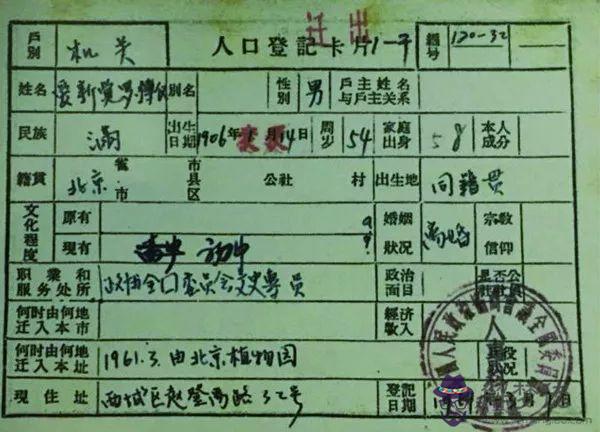 迁出
戶別 机关 人口登記卡片1-干 編号 120-32
姓名 愛新覺羅 別名 性別 男 戶主姓名与戶主关系
民族 滿 出生日期 1906年 月14日 周岁 54 家庭出身 本人成分
籍貫 北京 省市 市县区 公社 村 出生地 同籍贯
文化程度 原有 婚姻狀况 离婚 宗教信仰
現有 初中
职業和服务处所 政协全口委员会文史專员 政治面目 是否公社社員
何时由何地迁入本市 經济收入
何时由何地迁入本址 1961.3.由北京植物园 兵役狀况
現住址 西城区赵登禹路32号 登記日期 年3月 日